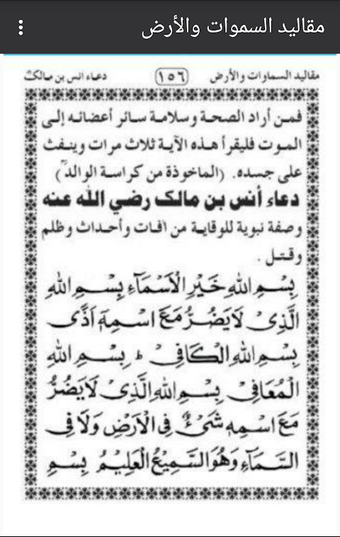 مقاليد السموات والأرض
مقاليد السماوات والأرض (١٥٦) دعاء انس بن مالك
فمن أراد الصحة وسلامة سائر أعضائه إلى
الموت فليقرأ هذه الآية ثلاث مرات وينفث
على جسده. (الماخوذة من كراسة الوالد)
دعاء أنس بن مالك رضي الله عنه
وصفة نبوية للوقاية من آفات وأحداث وظلم
وقتل.
بِسْمِ اللهِ خَيْرِ الْاَسْمَآءِ بِسْمِ اللهِ
الَّذِىْ لَا يَضُرُّ مَعَ اسْمِهٖ اَذًى
بِسْمِ اللهِ الْكَافِىْ ط بِسْمِ اللهِ
الْمُعَافِىْ بِسْمِ اللهِ الَّذِىْ لَا يَضُرُّ
مَعَ اسْمِهٖ شَىْءٌ فِى الْاَرْضِ وَلَا فِى
السَّمَآءِ وَهُوَ السَّمِيْعُ الْعَلِيْمُ بِسْمِ